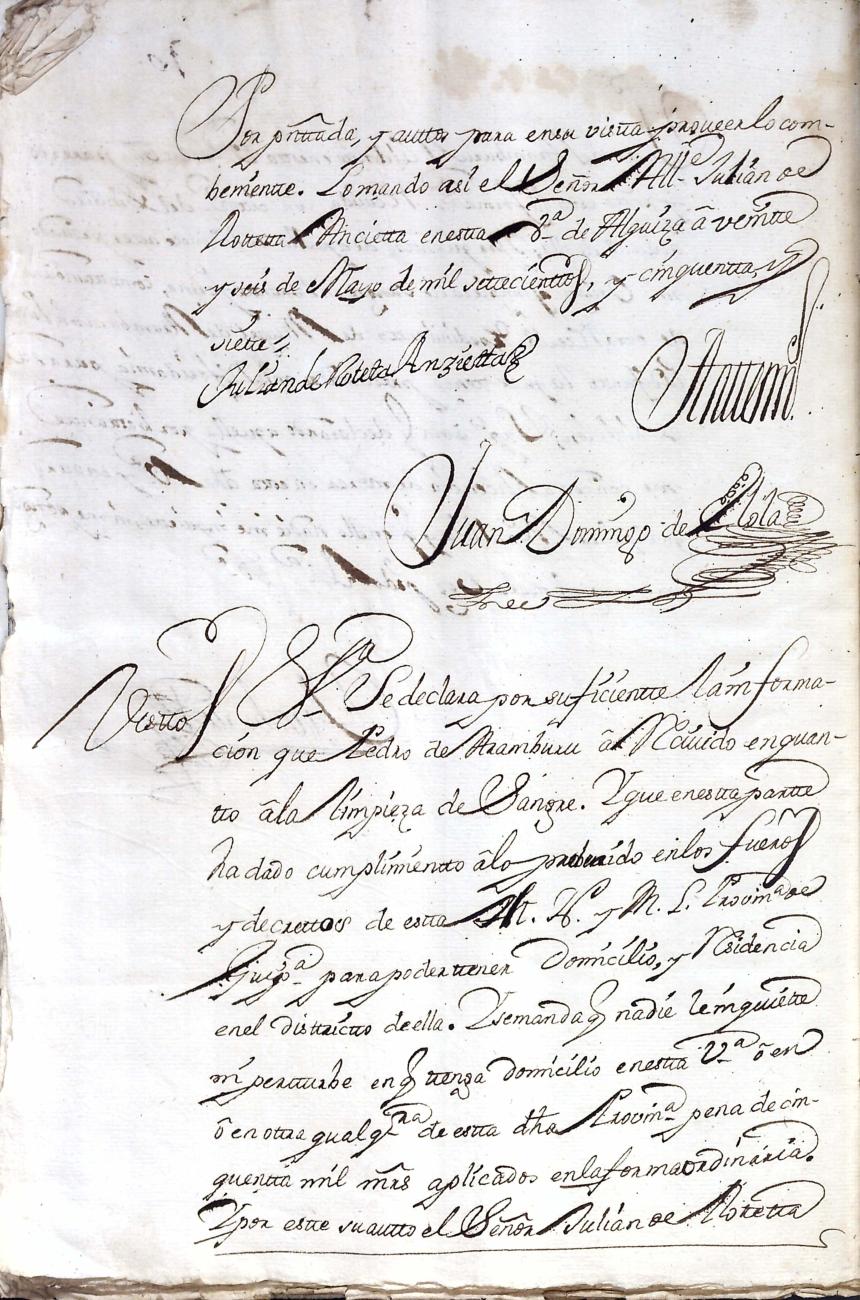 Por pnttada, y auttos para en su vistta proveer lo com-
benientte. Lo mando asi el Señor Allᵉ Julián de
Rottetta Ancietta en esta Vᵃ de Alquiza â veintte
y seis de Mayo de mil settecienttos, y cinquentta, y
siette
Julian de Roteta Anzietta
Antemi
Juan Domingo de
Vistto
Se declara por suficientte la informa-
ción que Pedro de Aramburu â Rcivido en quan-
tto â la limpieza de Sangre. Y que en estta partte
ha dado cumplimientto â lo prevenido en los fueros
y decrettos de estta M. N. y M. L. Provinᵃ de
Guipᵃ para poder ttener Domicilio, y Residencia
en el districtto de ella. Y se manda q nadie le inquiette
ni pertturbe en q ttenga domicilio en estta Vᵃ ô en
ô en otra qualqʳᵃ de estta dha Provinᵃ pena de cin-
quentta mil mrs aplicados en la forma ordinaria.
Y por estte su autto el Señor Julián de Rotetta